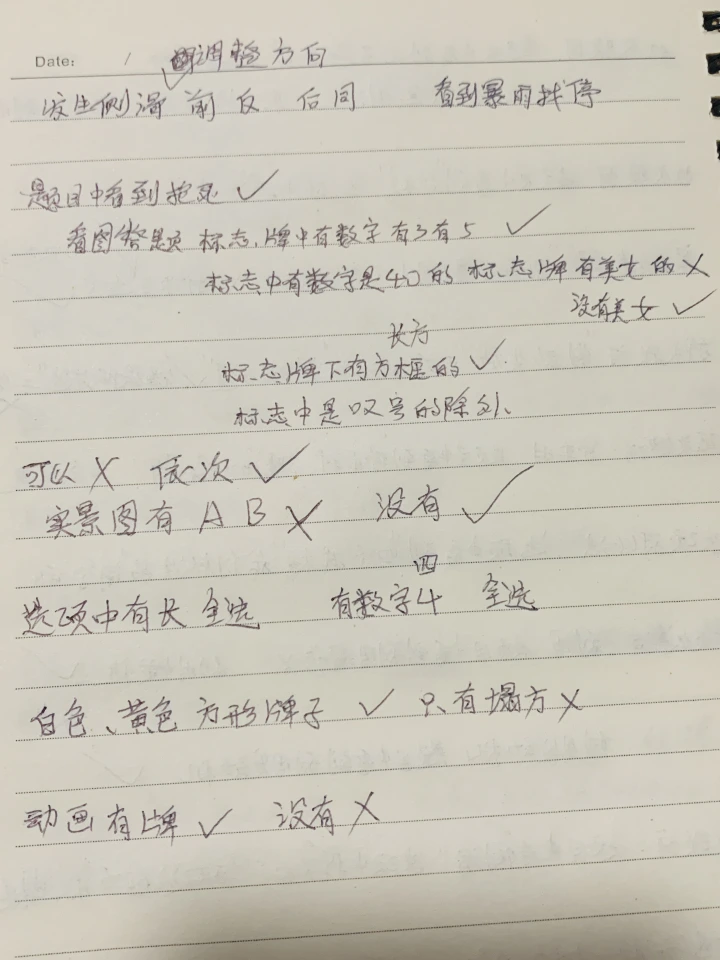 Date: / 调整方向
发生侧滑 前反 后同 看到暴雨找停
题目中看到抱死 ✓
看图答题 标志,牌中有数字有3有5 ✓
标志中有数字是40的 标志牌有美女的 X
没有美女 ✓
长方
标志牌下有方框的 ✓
标志中是叹号的除外、
可以 X 依次 ✓
实景图有 A B X 没有 ✓
四
选项中有长 全选 有数字4 全选
白色、黄色 方形牌子 ✓ 只有塌方 X
动画有牌 ✓ 没有 X